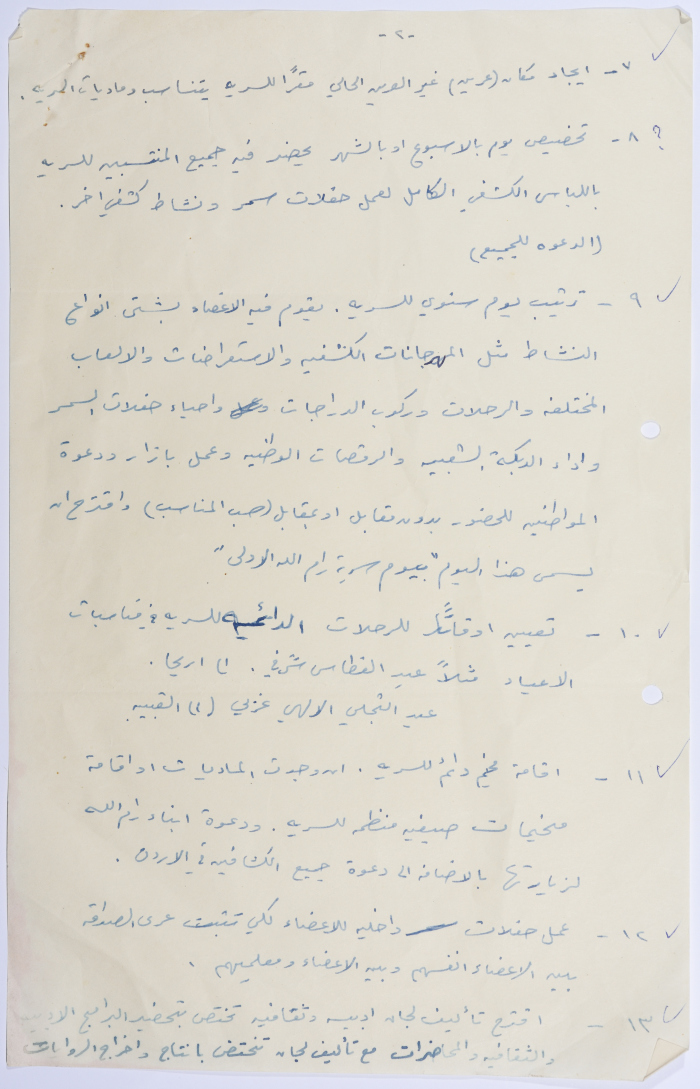 -٢-
٧- ايجاد مكان (عرين) غير العرين الحالي مقرًا للسريه يتناسب وماديات السريه.
؟ ٨- تخصيص يوم بالاسبوع او بالشهر يحضر فيه جميع المنتسبين للسريه
باللباس الكشفي الكامل لعمل حفلات سمر ونشاط كشفي اخر.
(الدعوه للجميع)
٩- ترتيب يوم سنوي للسريه. يقوم فيه الاعضاء بشتى انواع
النشاط مثل المهرجانات الكشفيه والاستعراضات والالعاب
المختلفه والرحلات وركوب الدراجات واحياء حفلات السمر
واداء الدبكة الشعبيه والرقصات الوطنيه وعمل بازار ودعوة
المواطنين للحضور بدون مقابل او بمقابل (حسب المناسب) واقترح ان
يسمى هذا اليوم "بيوم سرية رام الله الاولى"
١٠- تعيين اوقاتًا للرحلات الدائميه للسريه في مناسبات
الاعياد مثلاً عيد الغطاس شرقي. الى اريحا.
عيد التجلي الالهي غربي (الى القبيبه
١١- اقامة مخيم دائم للسريه. ان وجدت الماديات او اقامة
مخيمات صيفيه منظمه للسريه. ودعوة ابناء رام الله
لزيارتها بالاضافه الى دعوة جميع الكشافين في الاردن.
١٢- عمل حفلات داخليه للاعضاء لكي تثبت عرى الصداقه
بين الاعضاء انفسهم وبين الاعضاء ومعلميهم.
١٣- اقترح تأليف لجان ادبيه وثقافيه تختص بتحضير البرامج الادبيه
والثقافيه والمحاضرات مع تأليف لجان تختص بانتاج واخراج الروايات